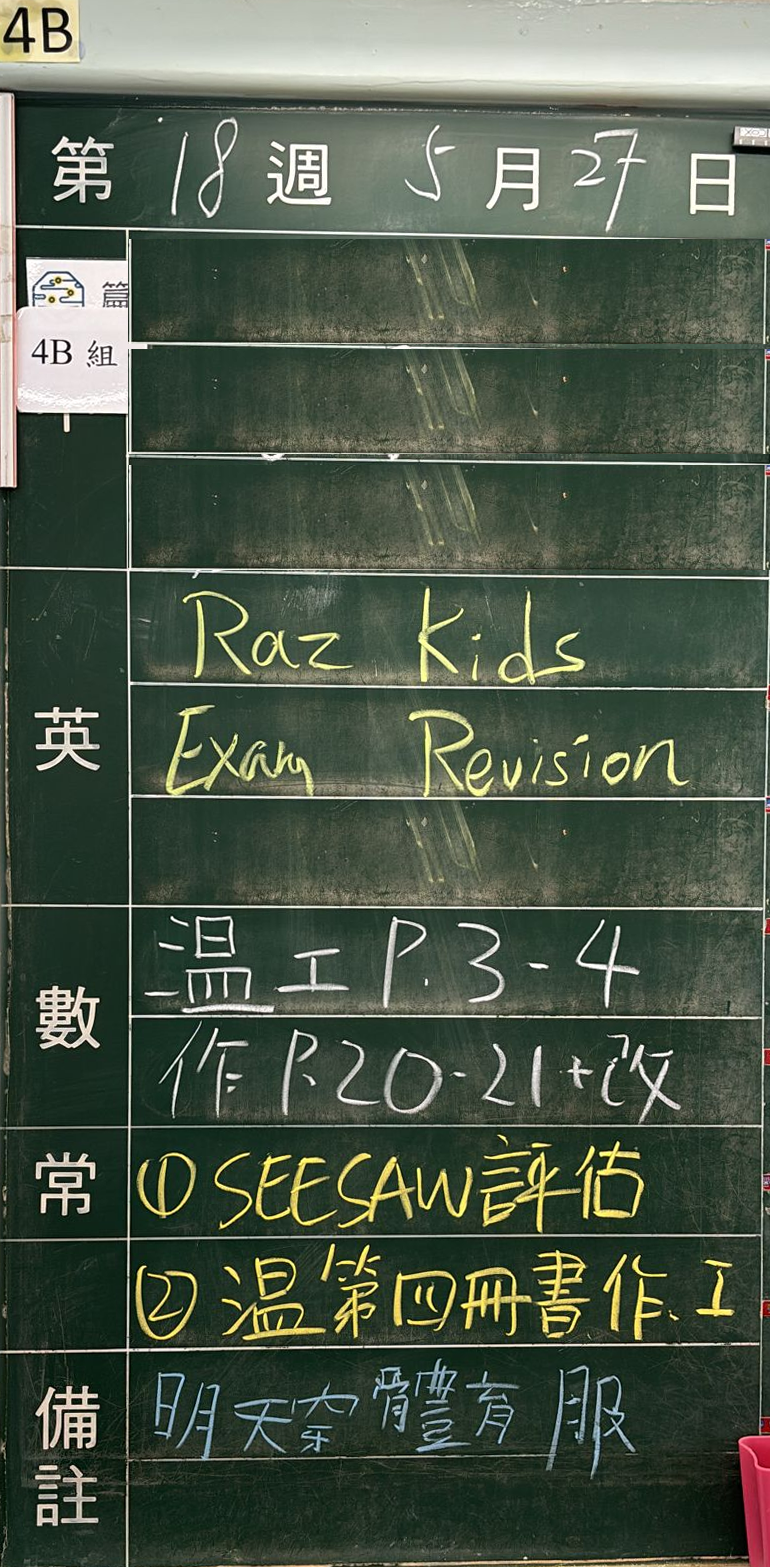 4B
第 18 週 5 月 27 日
篇
4B 組
英
Raz Kids
Exam Revision
數
溫工 P.3-4
作 P.20-21+改
常
①SEESAW評估
②溫第四冊書作、工
備註
明天穿體育服